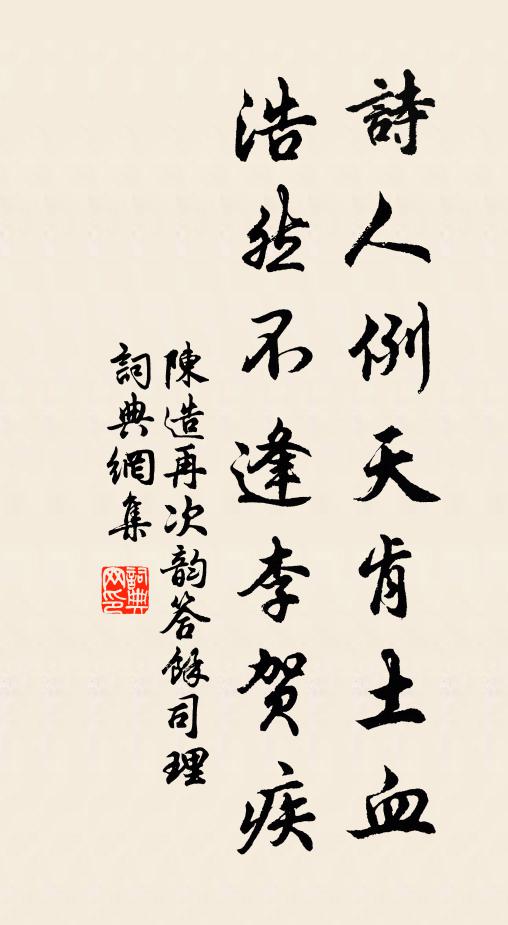 詩人例天肯土血
浩然不逢李賀疾
陳造再次韵答餘司理
詞典網集
詞典网印